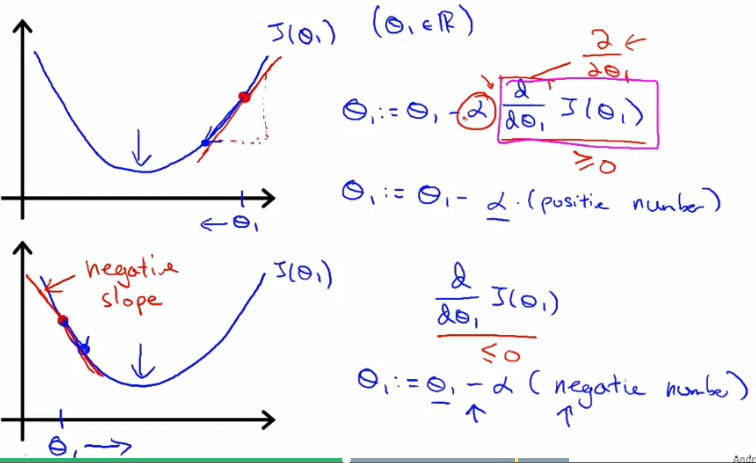 J(Θ₁) (Θ₁ ∈ ℝ)
∂/∂Θ₁ ←
Θ₁ := Θ₁ - α d/dΘ₁ J(Θ₁)
≥ 0
← Θ₁
Θ₁ := Θ₁ - α · (positie number)
negative
slope
J(Θ₁)
d/dΘ₁ J(Θ₁)
≤ 0
Θ₁ := Θ₁ - α (negatie number)
Θ₁ →
Andr